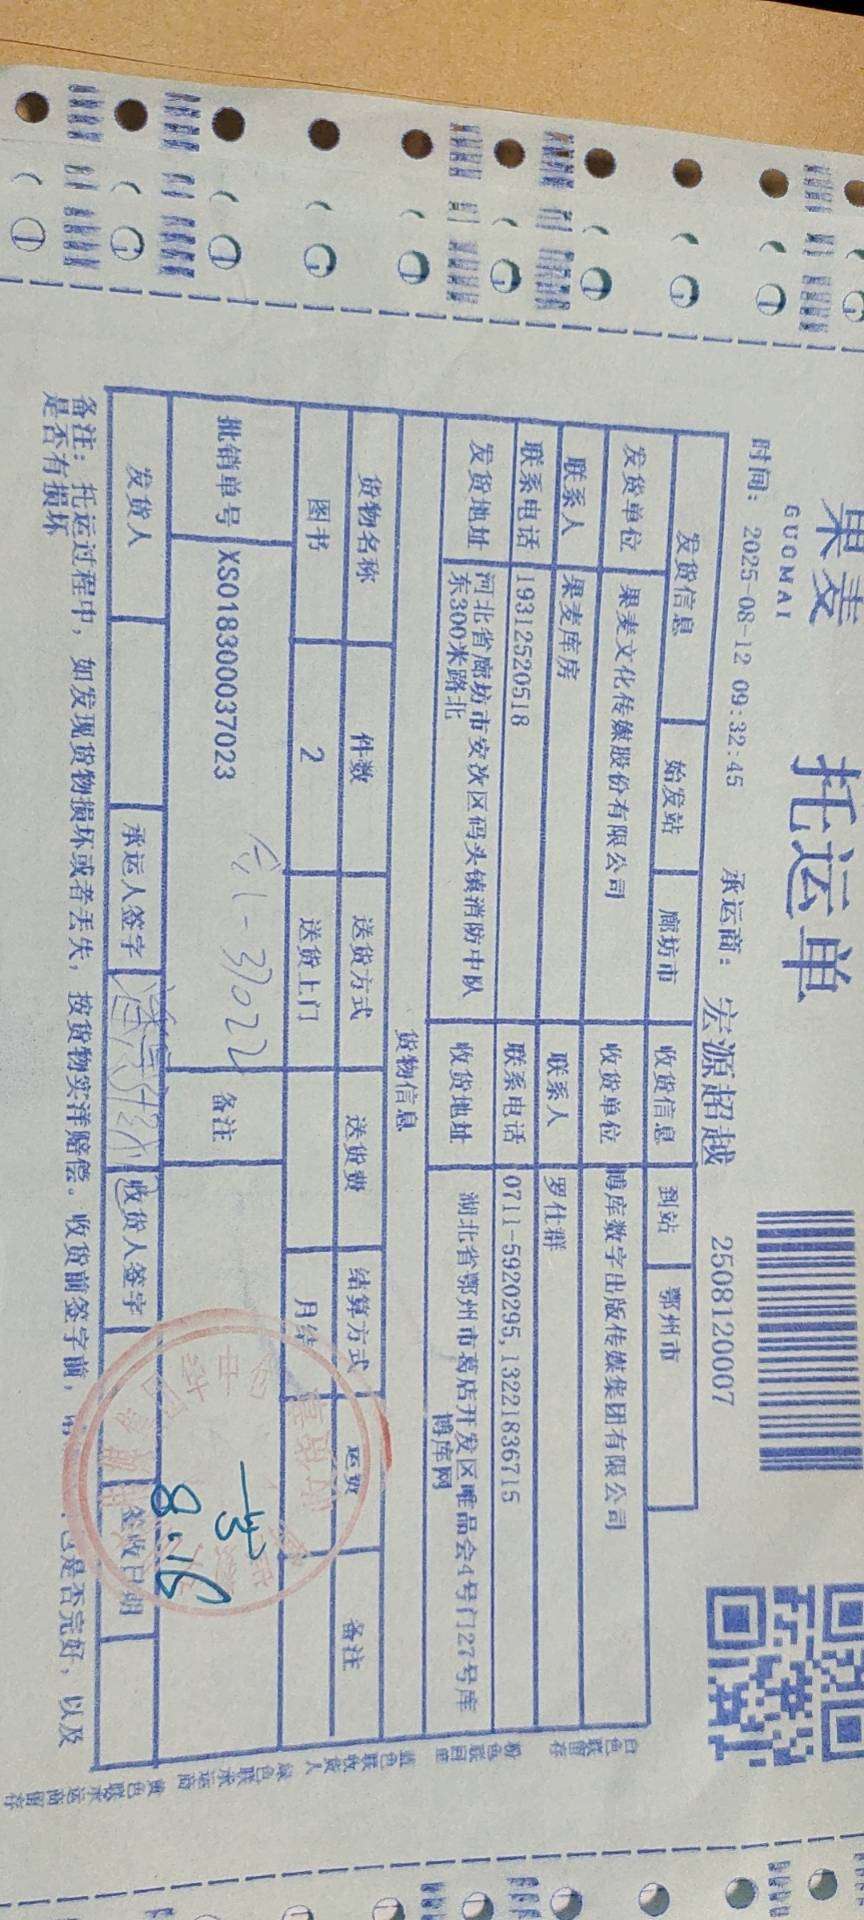 果麦
GUOMAI
托运单
时间: 2025-08-12 09:32:45 承运商: 宏源超越 2508120007
发货信息 始发站 廊坊市 收货信息 到站 鄂州市
发货单位 果麦文化传媒股份有限公司 收货单位 博库数字出版传媒集团有限公司
联系人 果麦库房 联系人 罗仕群
联系电话 19312520518 联系电话 0711-5920295,13221836715
发货地址 河北省廊坊市安次区码头镇消防中队 收货地址 湖北省鄂州市葛店开发区唯品会4号门27号库
东300米路北 博库网
货物信息
货物名称 件数 送货方式 送货费 结算方式 运费 备注
图书 2 送货上门 月结
批销单号 XS018300037023 备注
37022
8.16
发货人 承运人签字 收货人签字 签收日期
备注: 托运过程中, 如发现货物损坏或者丢失, 按货物实洋赔偿。收货前签字前, 是否完好, 以及
是否有损坏
白色联留存
粉色联回单
蓝色联收货人
绿色联承运商
黄色联承运商留存